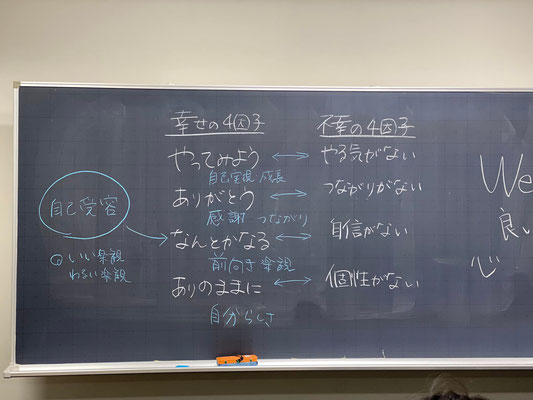 幸せの4因子
やってみよう
自己実現 成長
ありがとう
感謝 つながり
なんとかなる
前向き楽観
ありのままに
自分らしさ
不幸の4因子
やる気がない
つながりがない
自信がない
個性がない
自己受容
いい楽観
わるい楽観
We
良い
心